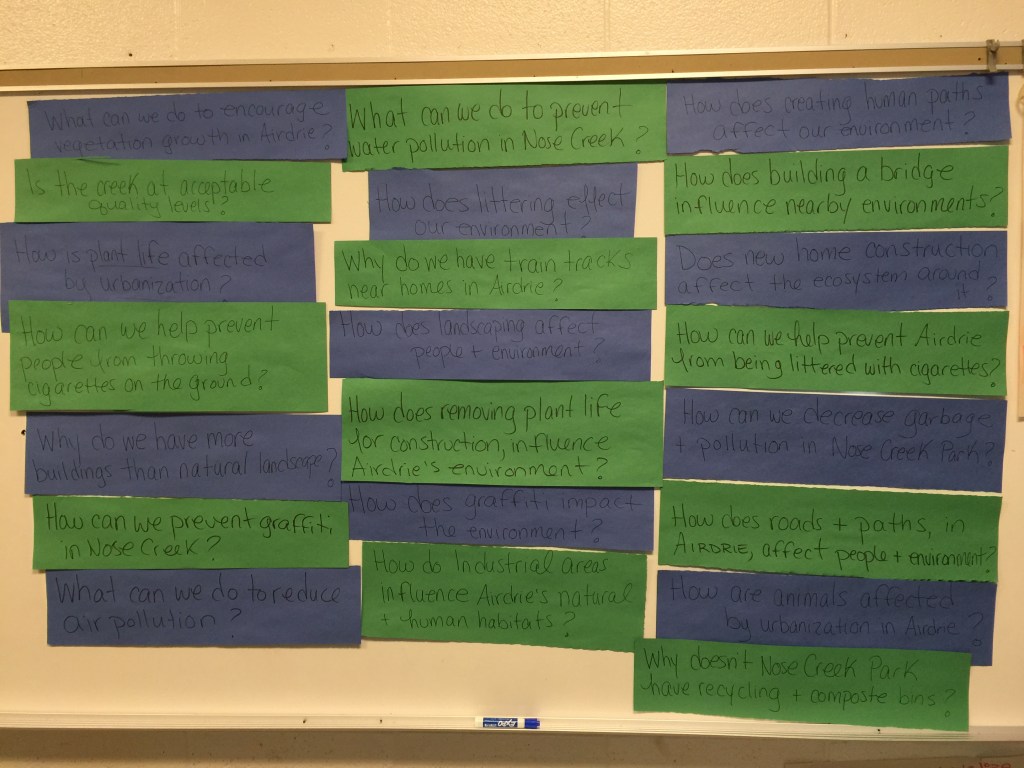 What can we do to encourage
vegetation growth in Airdrie?
Is the creek at acceptable
quality levels?
How is plant life affected
by urbanization?
How can we help prevent
people from throwing
cigarettes on the ground?
Why do we have more
buildings than natural landscape?
How can we prevent graffiti
in Nose Creek?
What can we do to reduce
air pollution?
What can we do to prevent
water pollution in Nose Creek?
How does littering effect
our environment?
Why do we have train tracks
near homes in Airdrie?
How does landscaping affect
people + environment?
How does removing plant life
for construction, influence
Airdrie's environment?
How does graffiti impact
the environment?
How do Industrial areas
influence Airdrie's natural
+ human habitats?
How does creating human paths
affect our environment?
How does building a bridge
influence nearby environments?
Does new home construction
affect the ecosystem around
it?
How can we help prevent Airdrie
from being littered with cigarettes?
How can we decrease garbage
+ pollution in Nose Creek Park?
How does roads + paths, in
AIRDRIE, affect people + environment?
How are animals affected
by urbanization in Airdrie?
Why doesn't Nose Creek Park
have recycling + composte bins?
EXPO